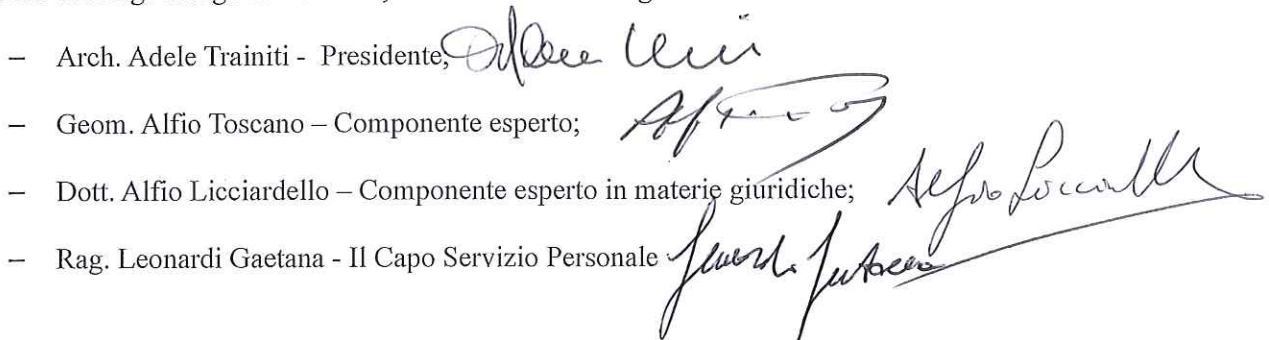 – Arch. Adele Trainiti - Presidente;
– Geom. Alfio Toscano – Componente esperto;
– Dott. Alfio Licciardello – Componente esperto in materie giuridiche; Alfio Licciardello
– Rag. Leonardi Gaetana - Il Capo Servizio Personale